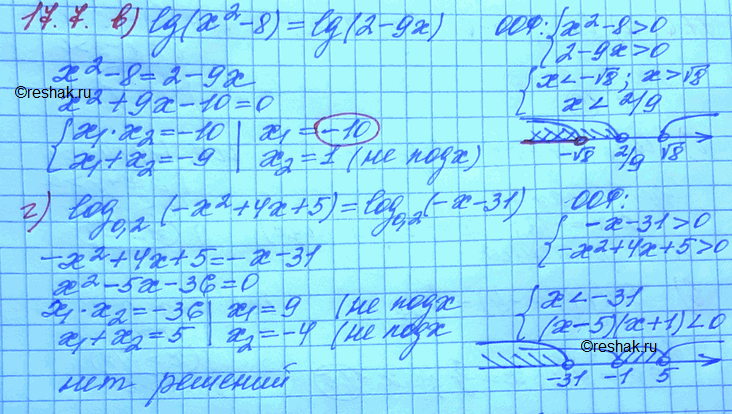 17.7. в) lg(x²-8)=lg(2-9x)
ООФ: { x²-8>0
2-9x>0
x²-8=2-9x
{ x<-√8; x>√8
x<2/9
©reshak.ru
x²+9x-10=0
{ x₁·x₂=-10 | x₁=-10
x₁+x₂=-9 | x₂=1 (не подх)
-√8 2/9 √8
г) log₀,₂(-x²+4x+5)=log₀,₂(-x-31)
ООФ:
{ -x-31>0
-x²+4x+5>0
-x²+4x+5=-x-31
x²-5x-36=0
x₁·x₂=-36 | x₁=9 (не подх
x₁+x₂=5 | x₂=-4 (не подх
{ x<-31
(x-5)(x+1)<0
©reshak.ru
-31 -1 5
нет решений